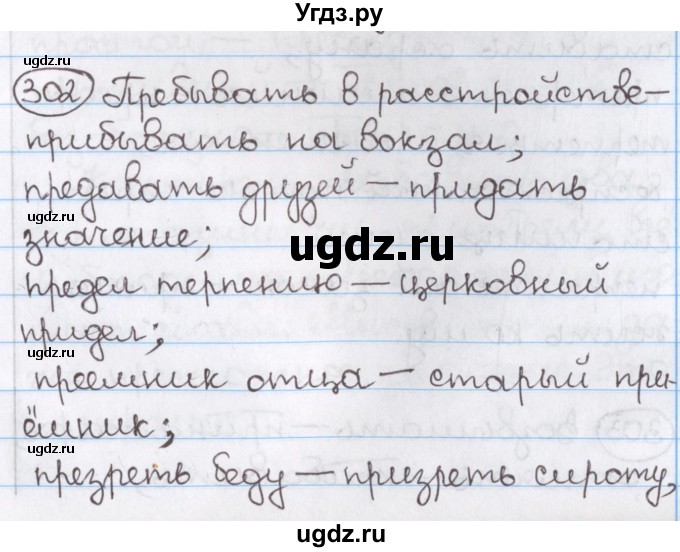 Угдз.ру
302 Пребывать в расстройстве –
прибывать на вокзал;
предавать друзей – придать
значение;
предел терпению – церковный
придел;
преемник отца – старый при-
ёмник;
презреть беду – призреть сироту,
ugdz.ru
ugdz.ru
ugdz.ru
ugdz.ru
ugdz.ru
ugdz.ru